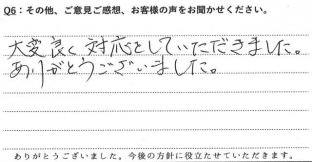 Q6：その他、ご意見ご感想、お客様の声をお聞かせください。
大変良く対応をしていただきました。
ありがとうございました。
ありがとうございました。今後の方針に役立たせていただきます。